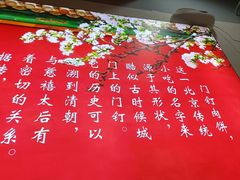 门钉肉饼,
这一北京传统
小吃的名字来
源于其形状,
酷似古时候城
门上的门钉。
它的历史可以
溯到清朝,
与慈禧太后有
着密切的关系。
据